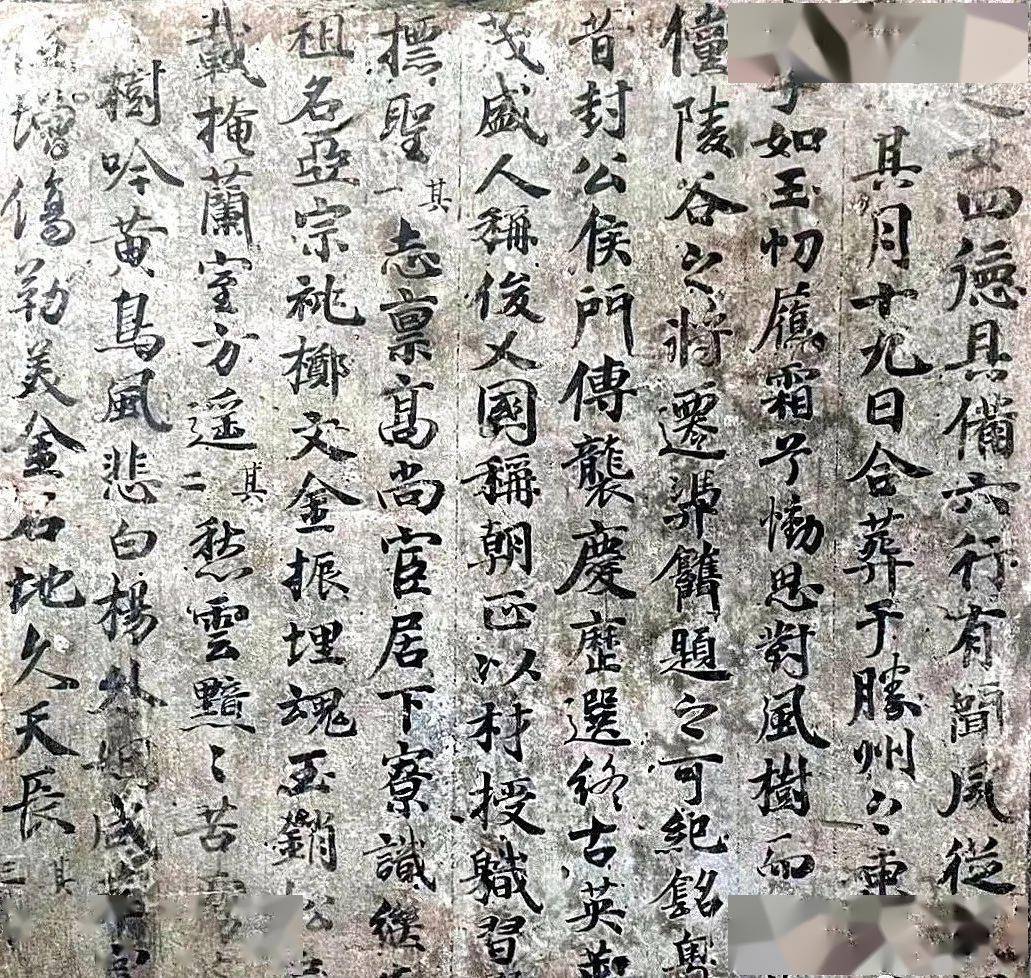 四德具備六行有聞夙從
其月十九日合葬于勝州々東
子如玉切履霜兮慟思對風樹而
僮陵谷之將遷舉舊題之可紀銘粵
昔封公侯門傳襲慶歷選終古英
茂盛人稱俊乂國稱朝正以材授職習
標聖其一志禀高尚宦居下寮讖繼
祖名亞宗祧擲文金振埋魂玉銷
載掩蘭室方遥其二愁雲黯々苦
樹吟黄鳥風悲白楊
增傷勒美金石地久天長其三